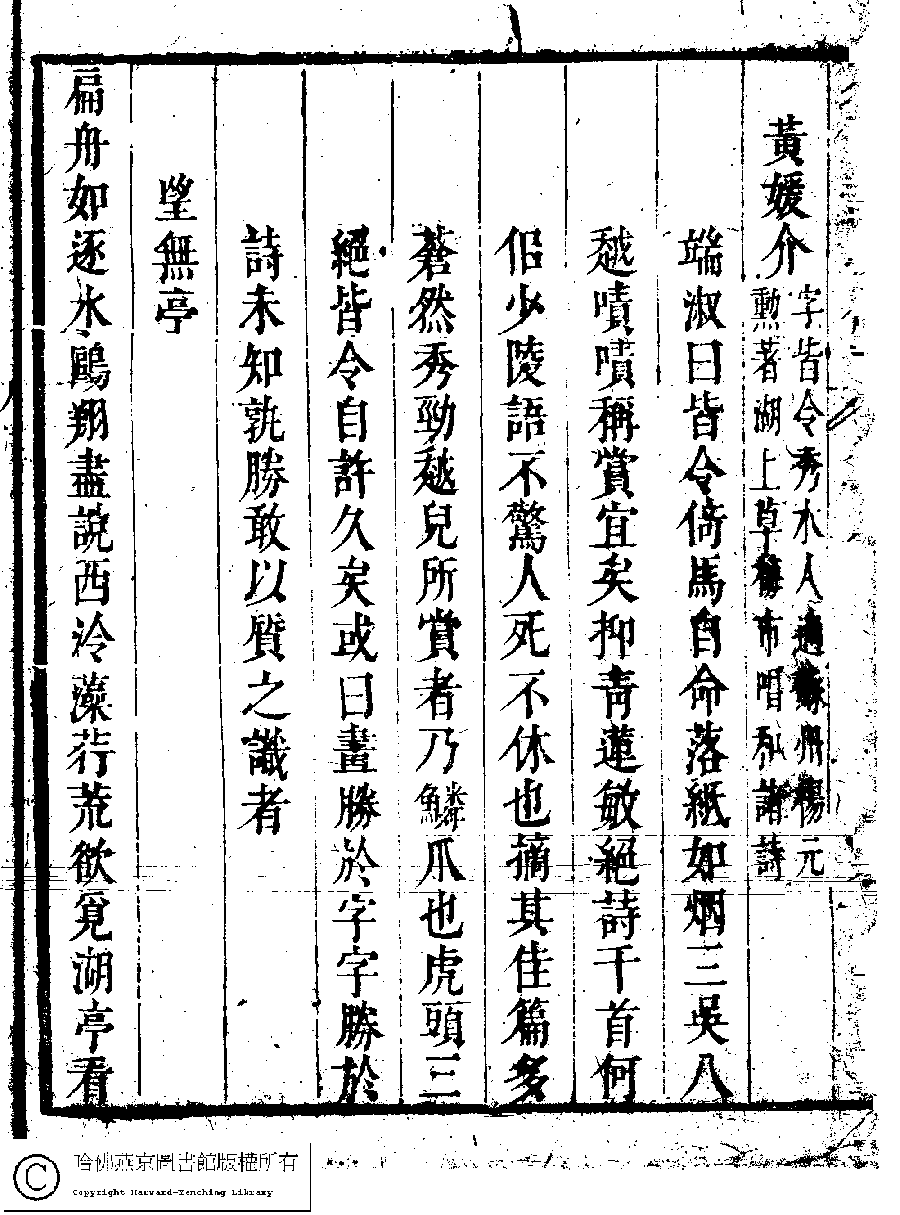 黃媛介 字皆令秀水人適㶚州楊元
勳著湖上草梅市唱和諸詩
端淑曰皆令倚馬自命落紙如烟三吳八
越嘖嘖稱賞宜矣抑青蓮敏絕詩千首何
侣少陵語不驚人死不休也摘其佳篇多
蒼然秀勁越兒所賞者乃鱗爪也虎頭三
絕皆令自許久矣或曰畫勝於字字勝於
詩未知孰勝敢以質之識者
望無亭
扁舟如逐水鷗翔盡說西泠藻荇荒欲覓湖亭看
哈佛燕京圖書館版權所有
Copyright Harvard-Yenching Library